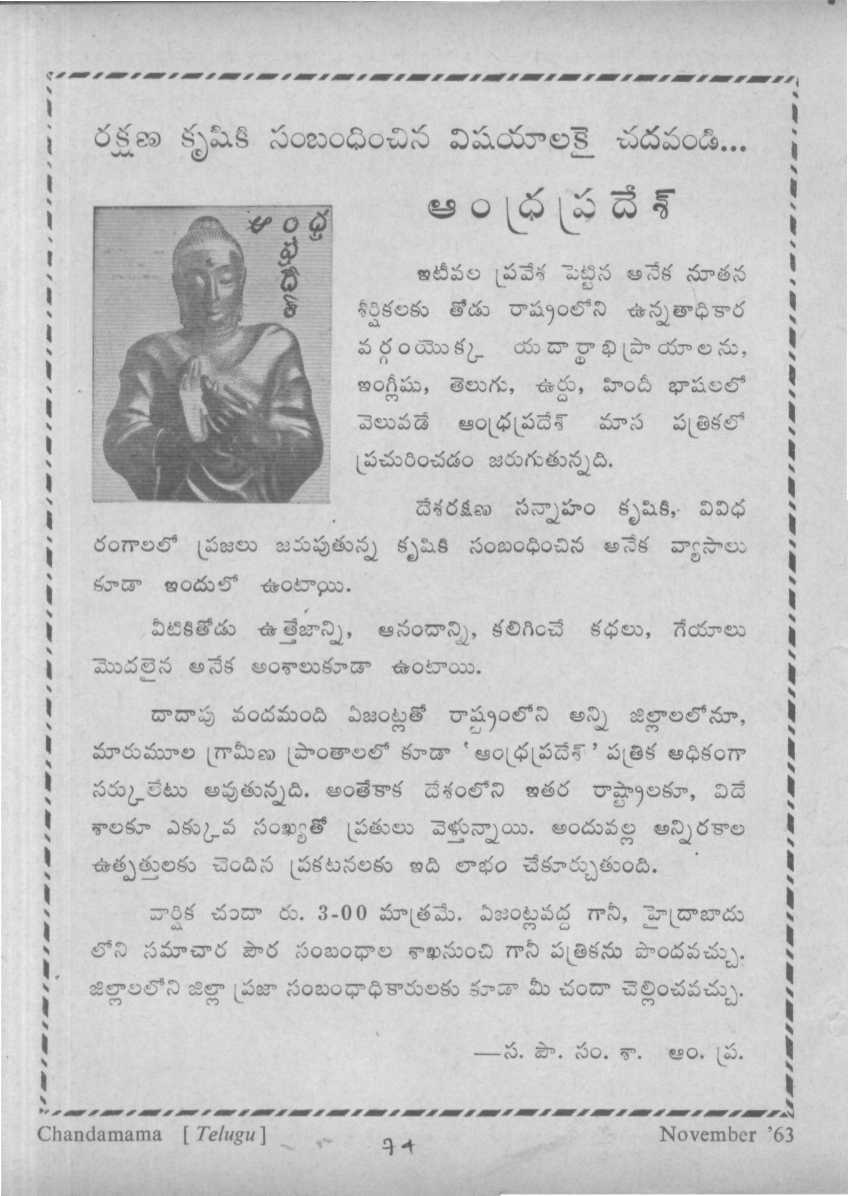 రక్షణ కృషికి సంబంధించిన విషయాలకై చదవండి...
ఆంధ్రప్రదేశ్
ఆంధ్ర
ప్రదేశ్
ఇటీవల ప్రవేశ పెట్టిన అనేక నూతన
శీర్షికలకు తోడు రాష్ట్రంలోని ఉన్నతాధికార
వర్గంయొక్క యదార్థాభిప్రాయాలను,
ఇంగ్లీషు, తెలుగు, ఉర్దు, హిందీ భాషలలో
వెలువడే ఆంధ్రప్రదేశ్ మాస పత్రికలో
ప్రచురించడం జరుగుతున్నది.
దేశరక్షణ సన్నాహం కృషికి, వివిధ
రంగాలలో ప్రజలు జరుపుతున్న కృషికి సంబంధించిన అనేక వ్యాసాలు
కూడా ఇందులో ఉంటాయి.
వీటికితోడు ఉత్తేజాన్ని, ఆనందాన్ని, కలిగించే కధలు, గేయాలు
మొదలైన అనేక అంశాలుకూడా ఉంటాయి.
దాదాపు వందమంది ఏజంట్లతో రాష్ట్రంలోని అన్ని జిల్లాలలోనూ,
మారుమూల గ్రామీణ ప్రాంతాలలో కూడా ‘ఆంధ్రప్రదేశ్’ పత్రిక అధికంగా
సర్క్యులేటు అవుతున్నది. అంతేకాక దేశంలోని ఇతర రాష్ట్రాలకూ, విదే
శాలకూ ఎక్కువ సంఖ్యతో ప్రతులు వెళ్తున్నాయి. అందువల్ల అన్నిరకాల
ఉత్పత్తులకు చెందిన ప్రకటనలకు ఇది లాభం చేకూర్చుతుంది.
వార్షిక చందా రు. 3-00 మాత్రమే. ఏజంట్లవద్ద గానీ, హైద్రాబాదు
లోని సమాచార పౌర సంబంధాల శాఖనుంచి గానీ పత్రికను పొందవచ్చు.
జిల్లాలలోని జిల్లా ప్రజా సంబంధాధికారులకు కూడా మీ చందా చెల్లించవచ్చు.
—స. పౌ. సం. శా. ఆం. ప్ర.
Chandamama [Telugu] November '63
74